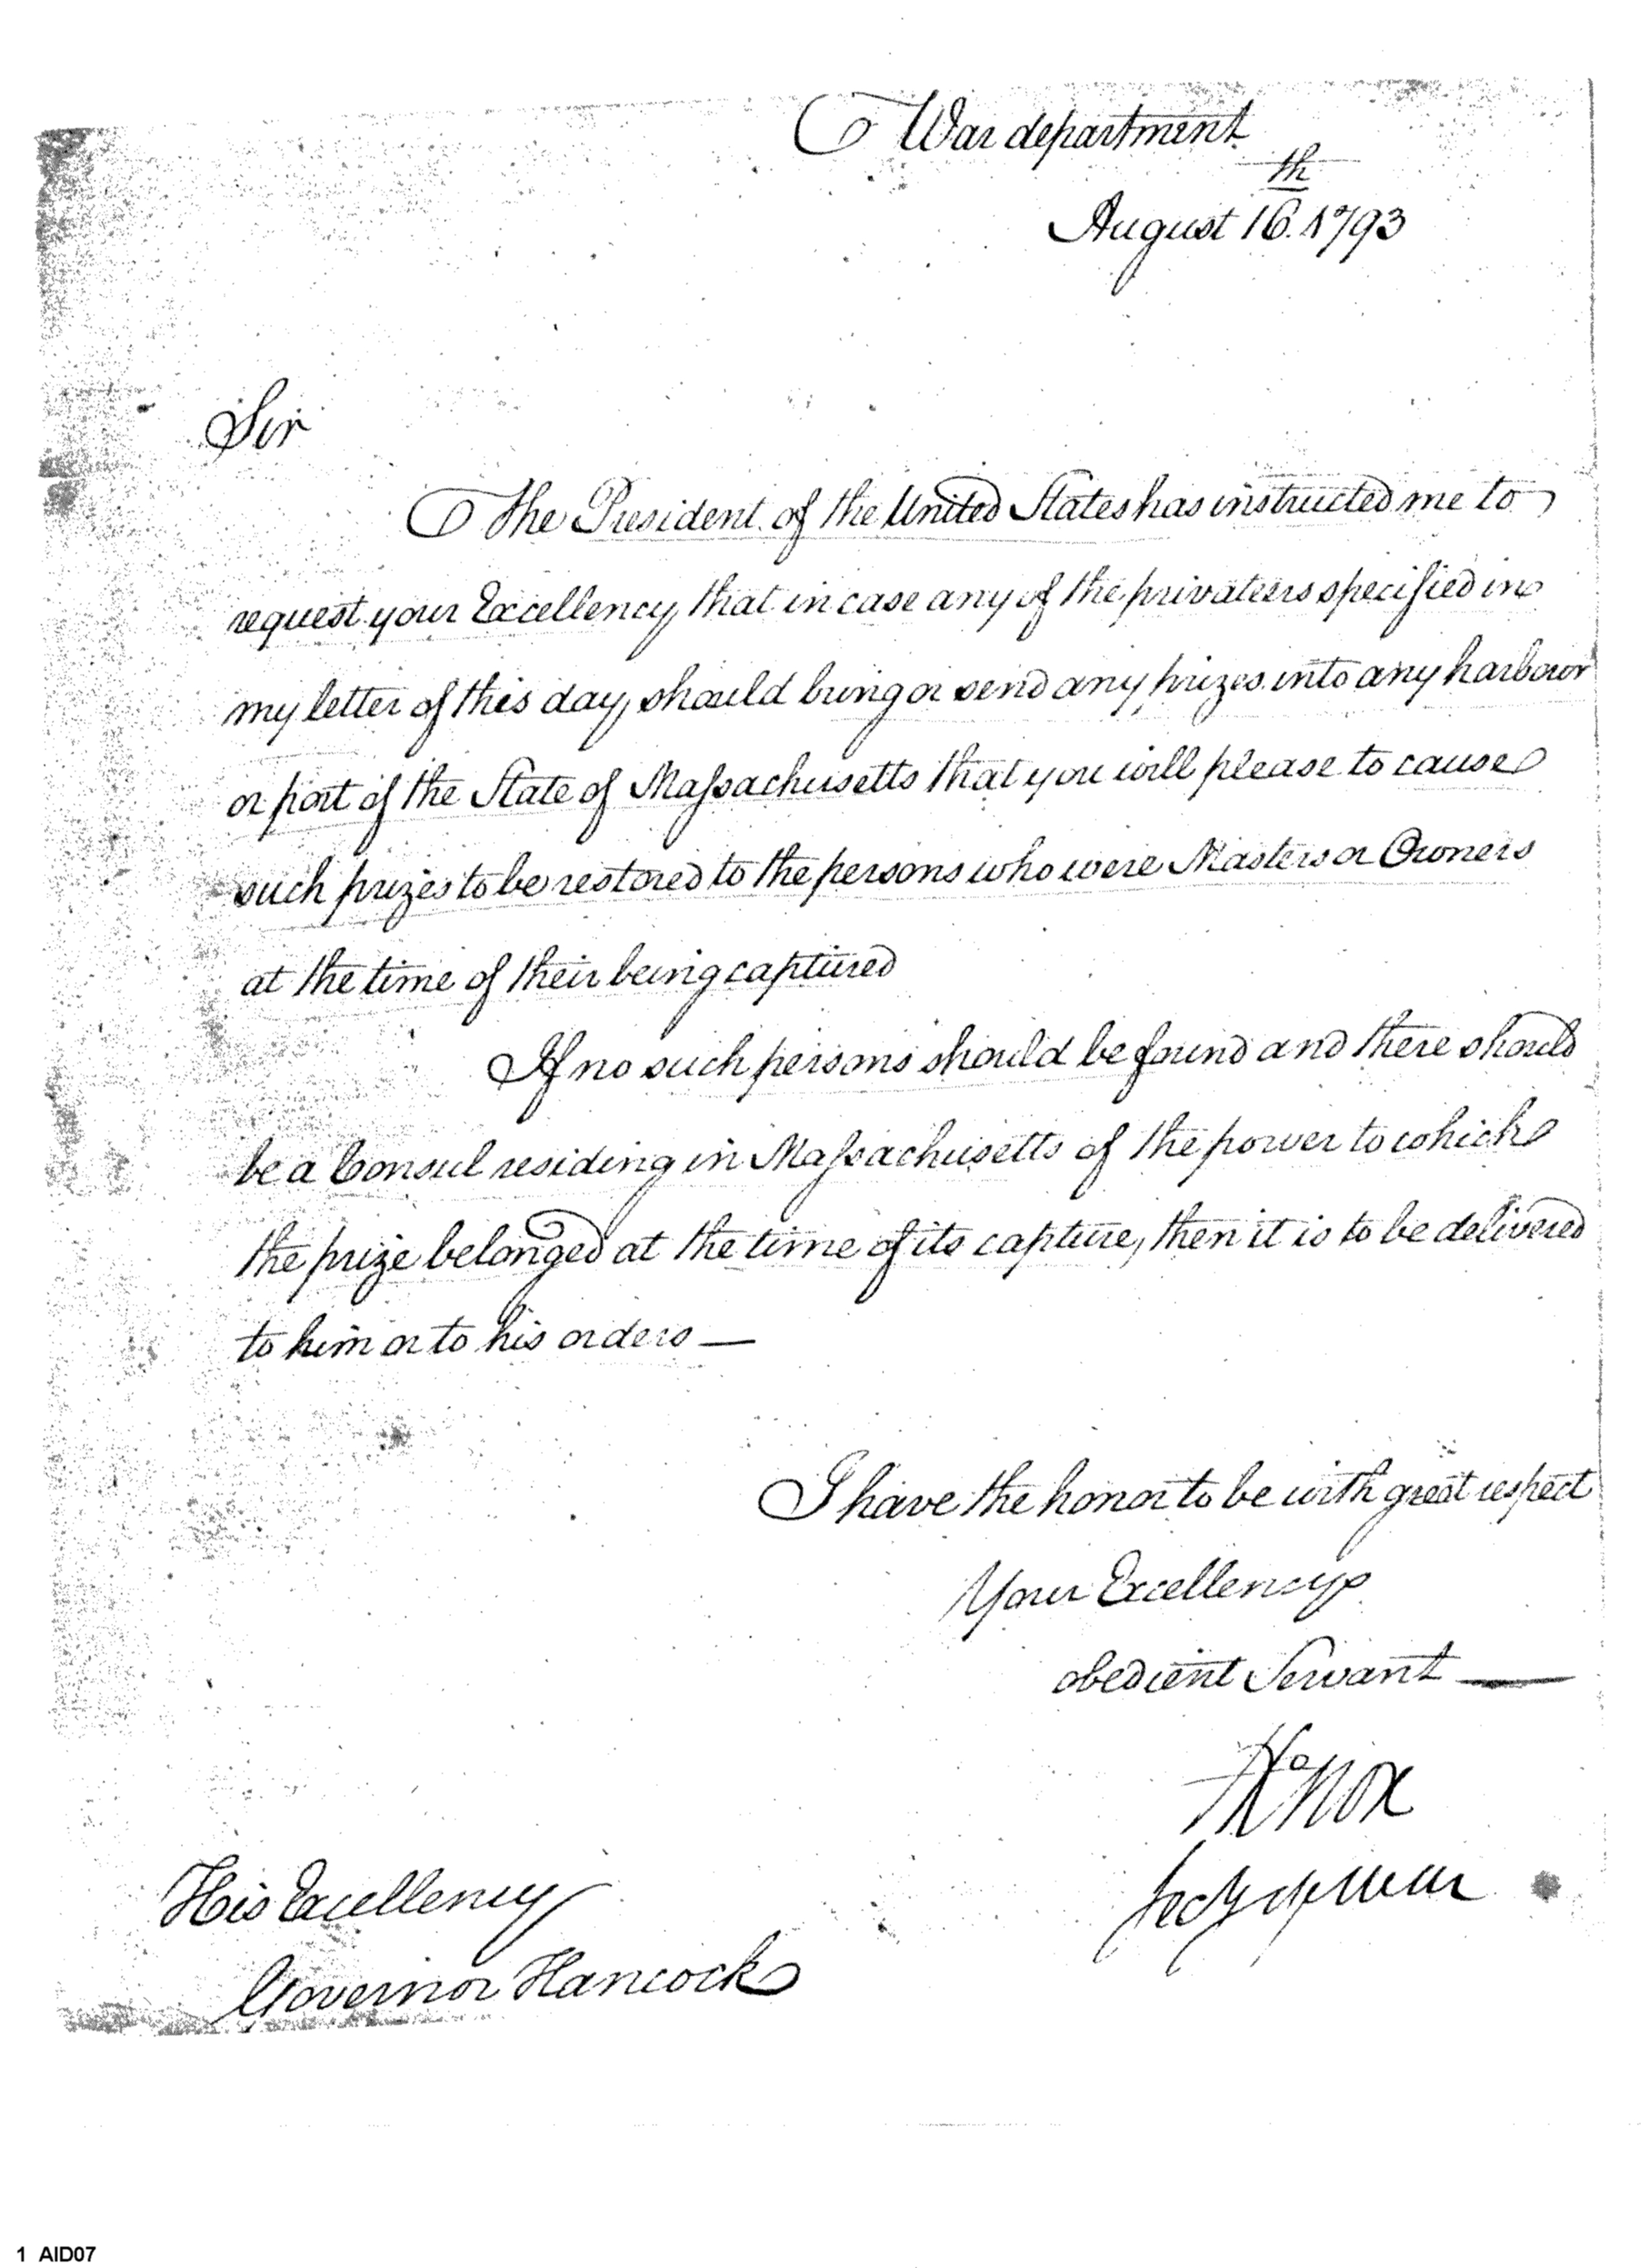 War department
August 16.th 1793
Sir
The President of the United States has instructed me to
request your Excellency, that in case any of the privateers specified in
my letter of this day, should bring or send any prizes into any harbour
or port of the State of Maſsachusetts that you will please to cause
such prizes to be restored to the persons who were Masters or Owners
at the time of their being captured
If no such persons should be found and there should
be a Consul residing in Maſsachusetts of the power to which
the prize belonged at the time of its capture, then it is to be delivered
to him or to his orders —
I have the honor to be with great respect
Your Excellency
obedient Servant —
H Knox
Secy of War
His Excellency
Governor Hancock
1 AID07